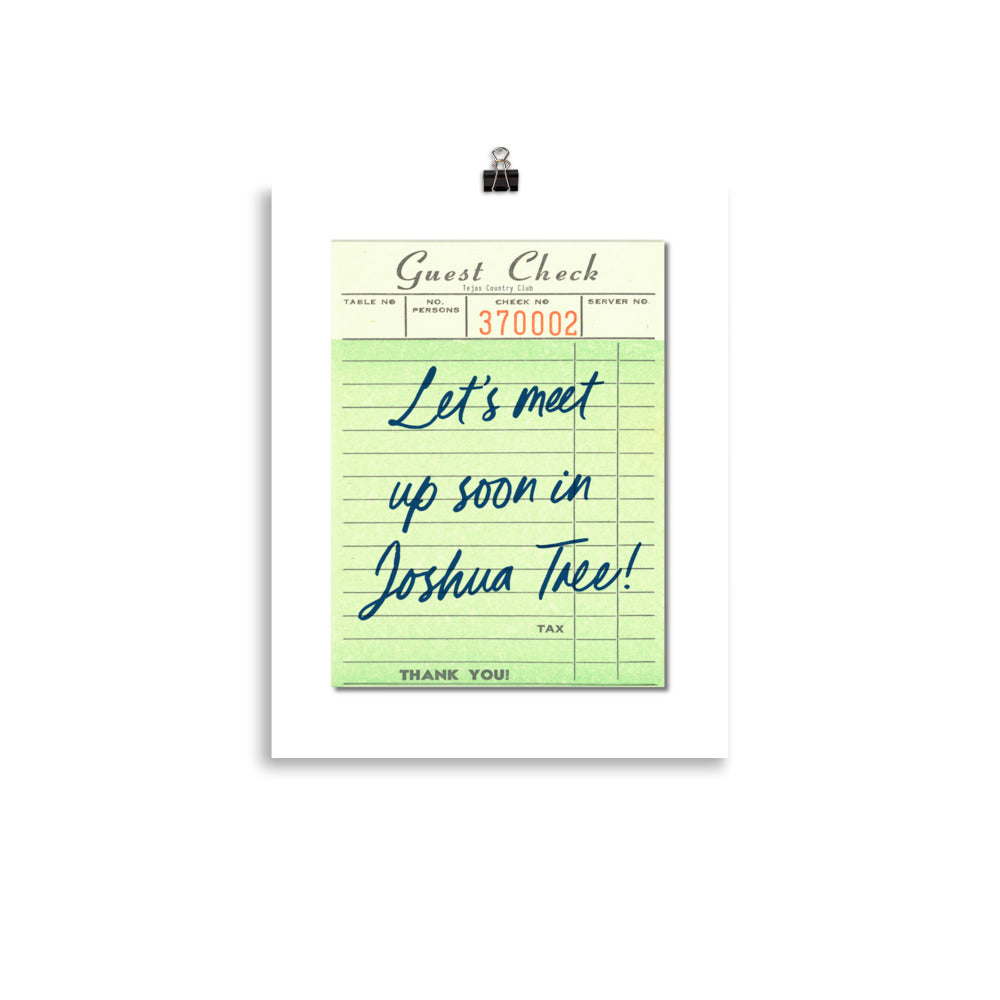 Guest Check
Tejas Country Club
TABLE NO NO. PERSONS CHECK NO SERVER NO.
370002
Let's meet
up soon in
Joshua Tree!
TAX
THANK YOU!